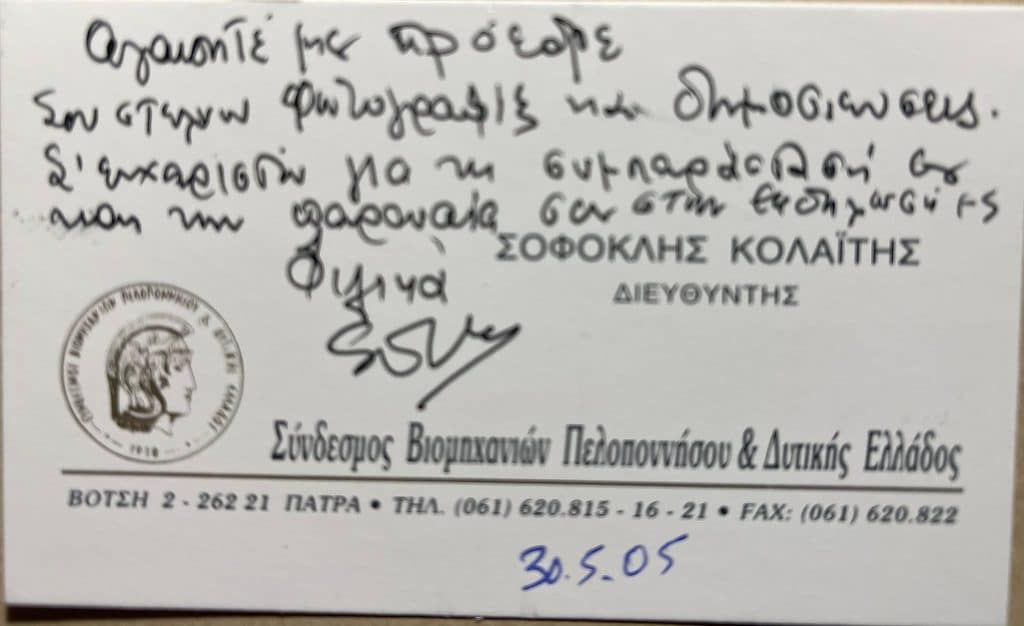 Αγαπητέ μου πρόεδρε
Σου στέλνω φωτογραφίες και δημοσιεύσεις.
Σ' ευχαριστώ για τη συμπαράστασή σου
και την παρουσία σου στην εκδήλωσή μας
ΣΟΦΟΚΛΗΣ ΚΟΛΑΪΤΗΣ
ΔΙΕΥΘΥΝΤΗΣ
Φιλικά
1918
Σύνδεσμος Βιομηχανιών Πελοποννήσου & Δυτικής Ελλάδος
ΒΟΤΣΗ 2 - 262 21 ΠΑΤΡΑ • ΤΗΛ. (061) 620.815 - 16 - 21 • FAX: (061) 620.822
30.5.05